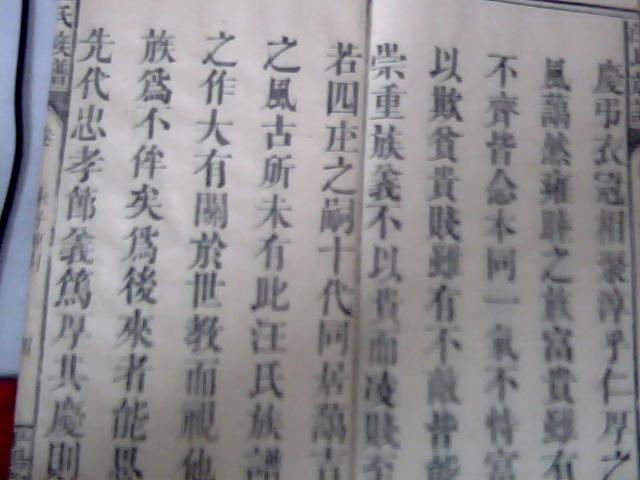 慶弔衣冠相聚淳乎仁厚之
風藹然雍睦之族富貴雖有
不齊皆念本同一氣不恃富
以欺貧貴賤雖有不敵皆能
崇重族義不以貴而凌賤至
若四庄之嗣十代同居藹古
之風古所未有此汪氏族譜
之作大有關於世教而視他
族為不侔矣為後來者能思
先代忠孝節義篤厚其慶則
氏族譜
卷